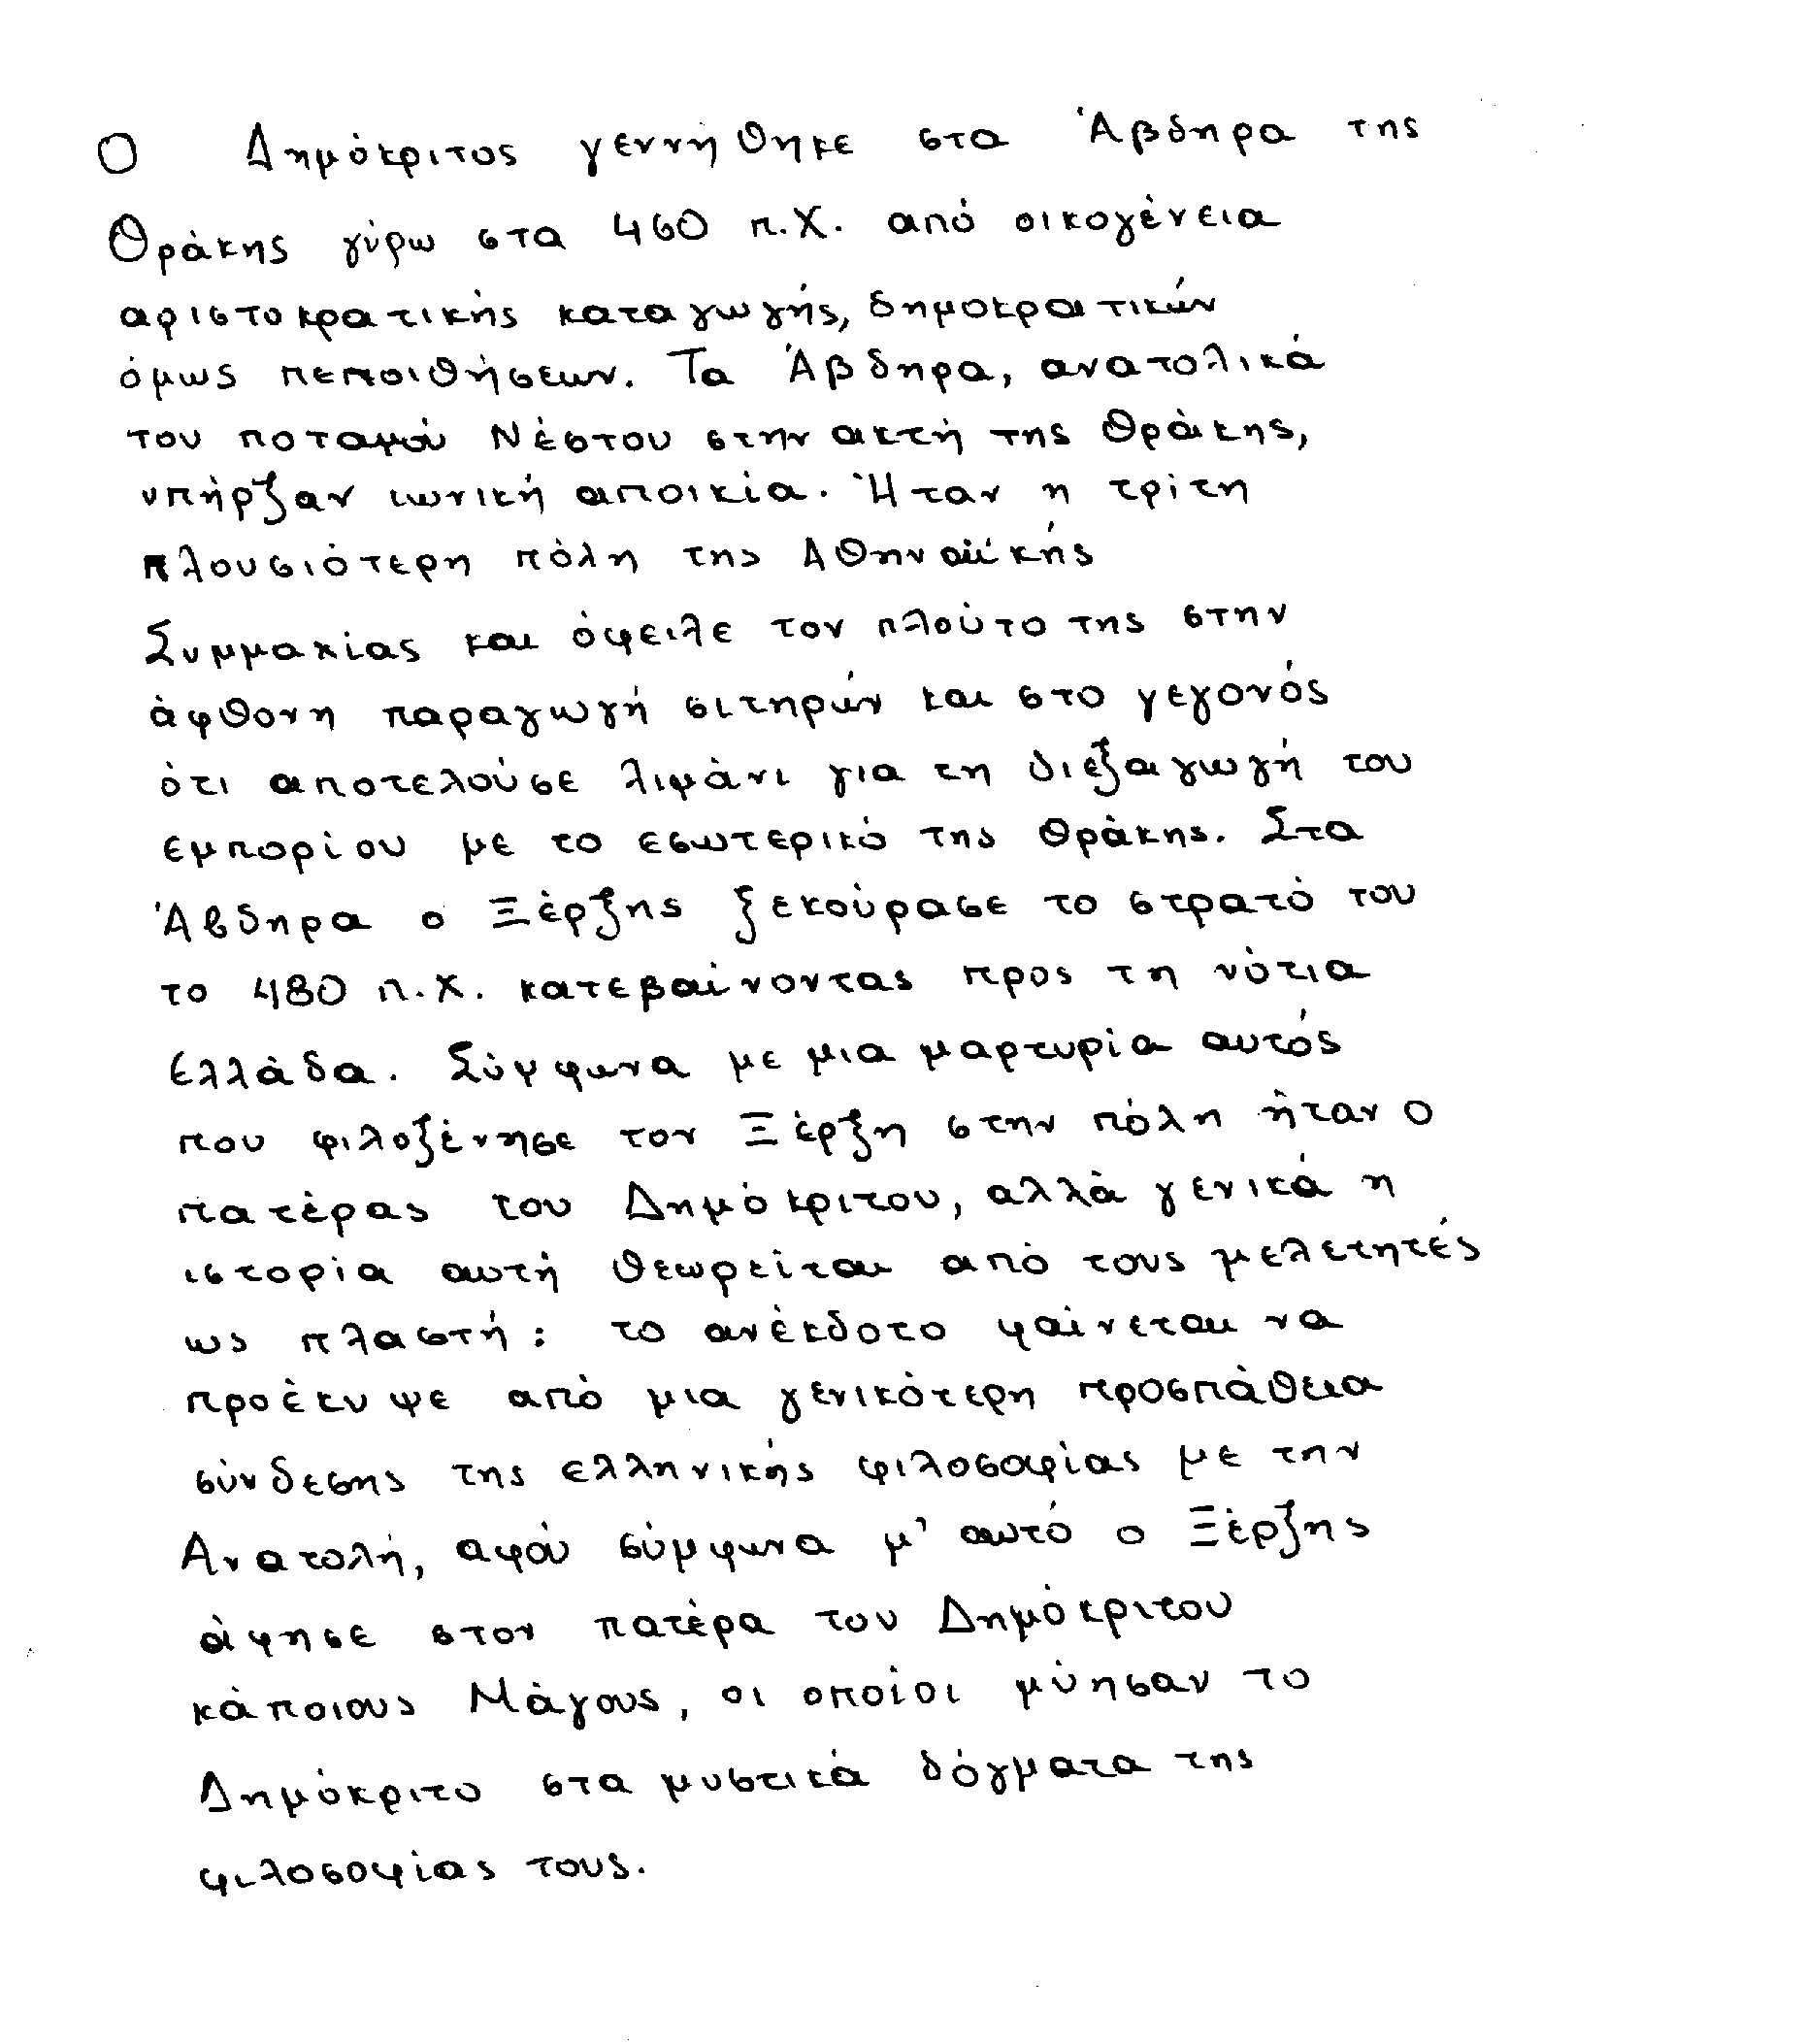 Ο Δημόκριτος γεννήθηκε στα Άβδηρα της
Θράκης γύρω στα 460 π.Χ. από οικογένεια
αριστοκρατικής καταγωγής, δημοκρατικών
όμως πεποιθήσεων. Τα Άβδηρα, ανατολικά
του ποταμού Νέστου στην ακτή της Θράκης,
υπήρξαν ιωνική αποικία. Ήταν η τρίτη
πλουσιότερη πόλη της Αθηναϊκής
Συμμαχίας και όφειλε τον πλούτο της στην
άφθονη παραγωγή σιτηρών και στο γεγονός
ότι αποτελούσε λιμάνι για τη διεξαγωγή του
εμπορίου με το εσωτερικό της Θράκης. Στα
Άβδηρα ο Ξέρξης ξεκούρασε το στρατό του
το 480 π.Χ. κατεβαίνοντας προς τη νότια
Ελλάδα. Σύμφωνα με μια μαρτυρία αυτός
που φιλοξένησε τον Ξέρξη στην πόλη ήταν ο
πατέρας του Δημόκριτου, αλλά γενικά η
ιστορία αυτή θεωρείται από τους μελετητές
ως πλαστή: το ανέκδοτο φαίνεται να
προέκυψε από μια γενικότερη προσπάθεια
σύνδεσης της ελληνικής φιλοσοφίας με την
Ανατολή, αφού σύμφωνα μ' αυτό ο Ξέρξης
άφησε στον πατέρα του Δημόκριτου
κάποιους Μάγους, οι οποίοι μύησαν το
Δημόκριτο στα μυστικά δόγματα της
φιλοσοφίας τους.